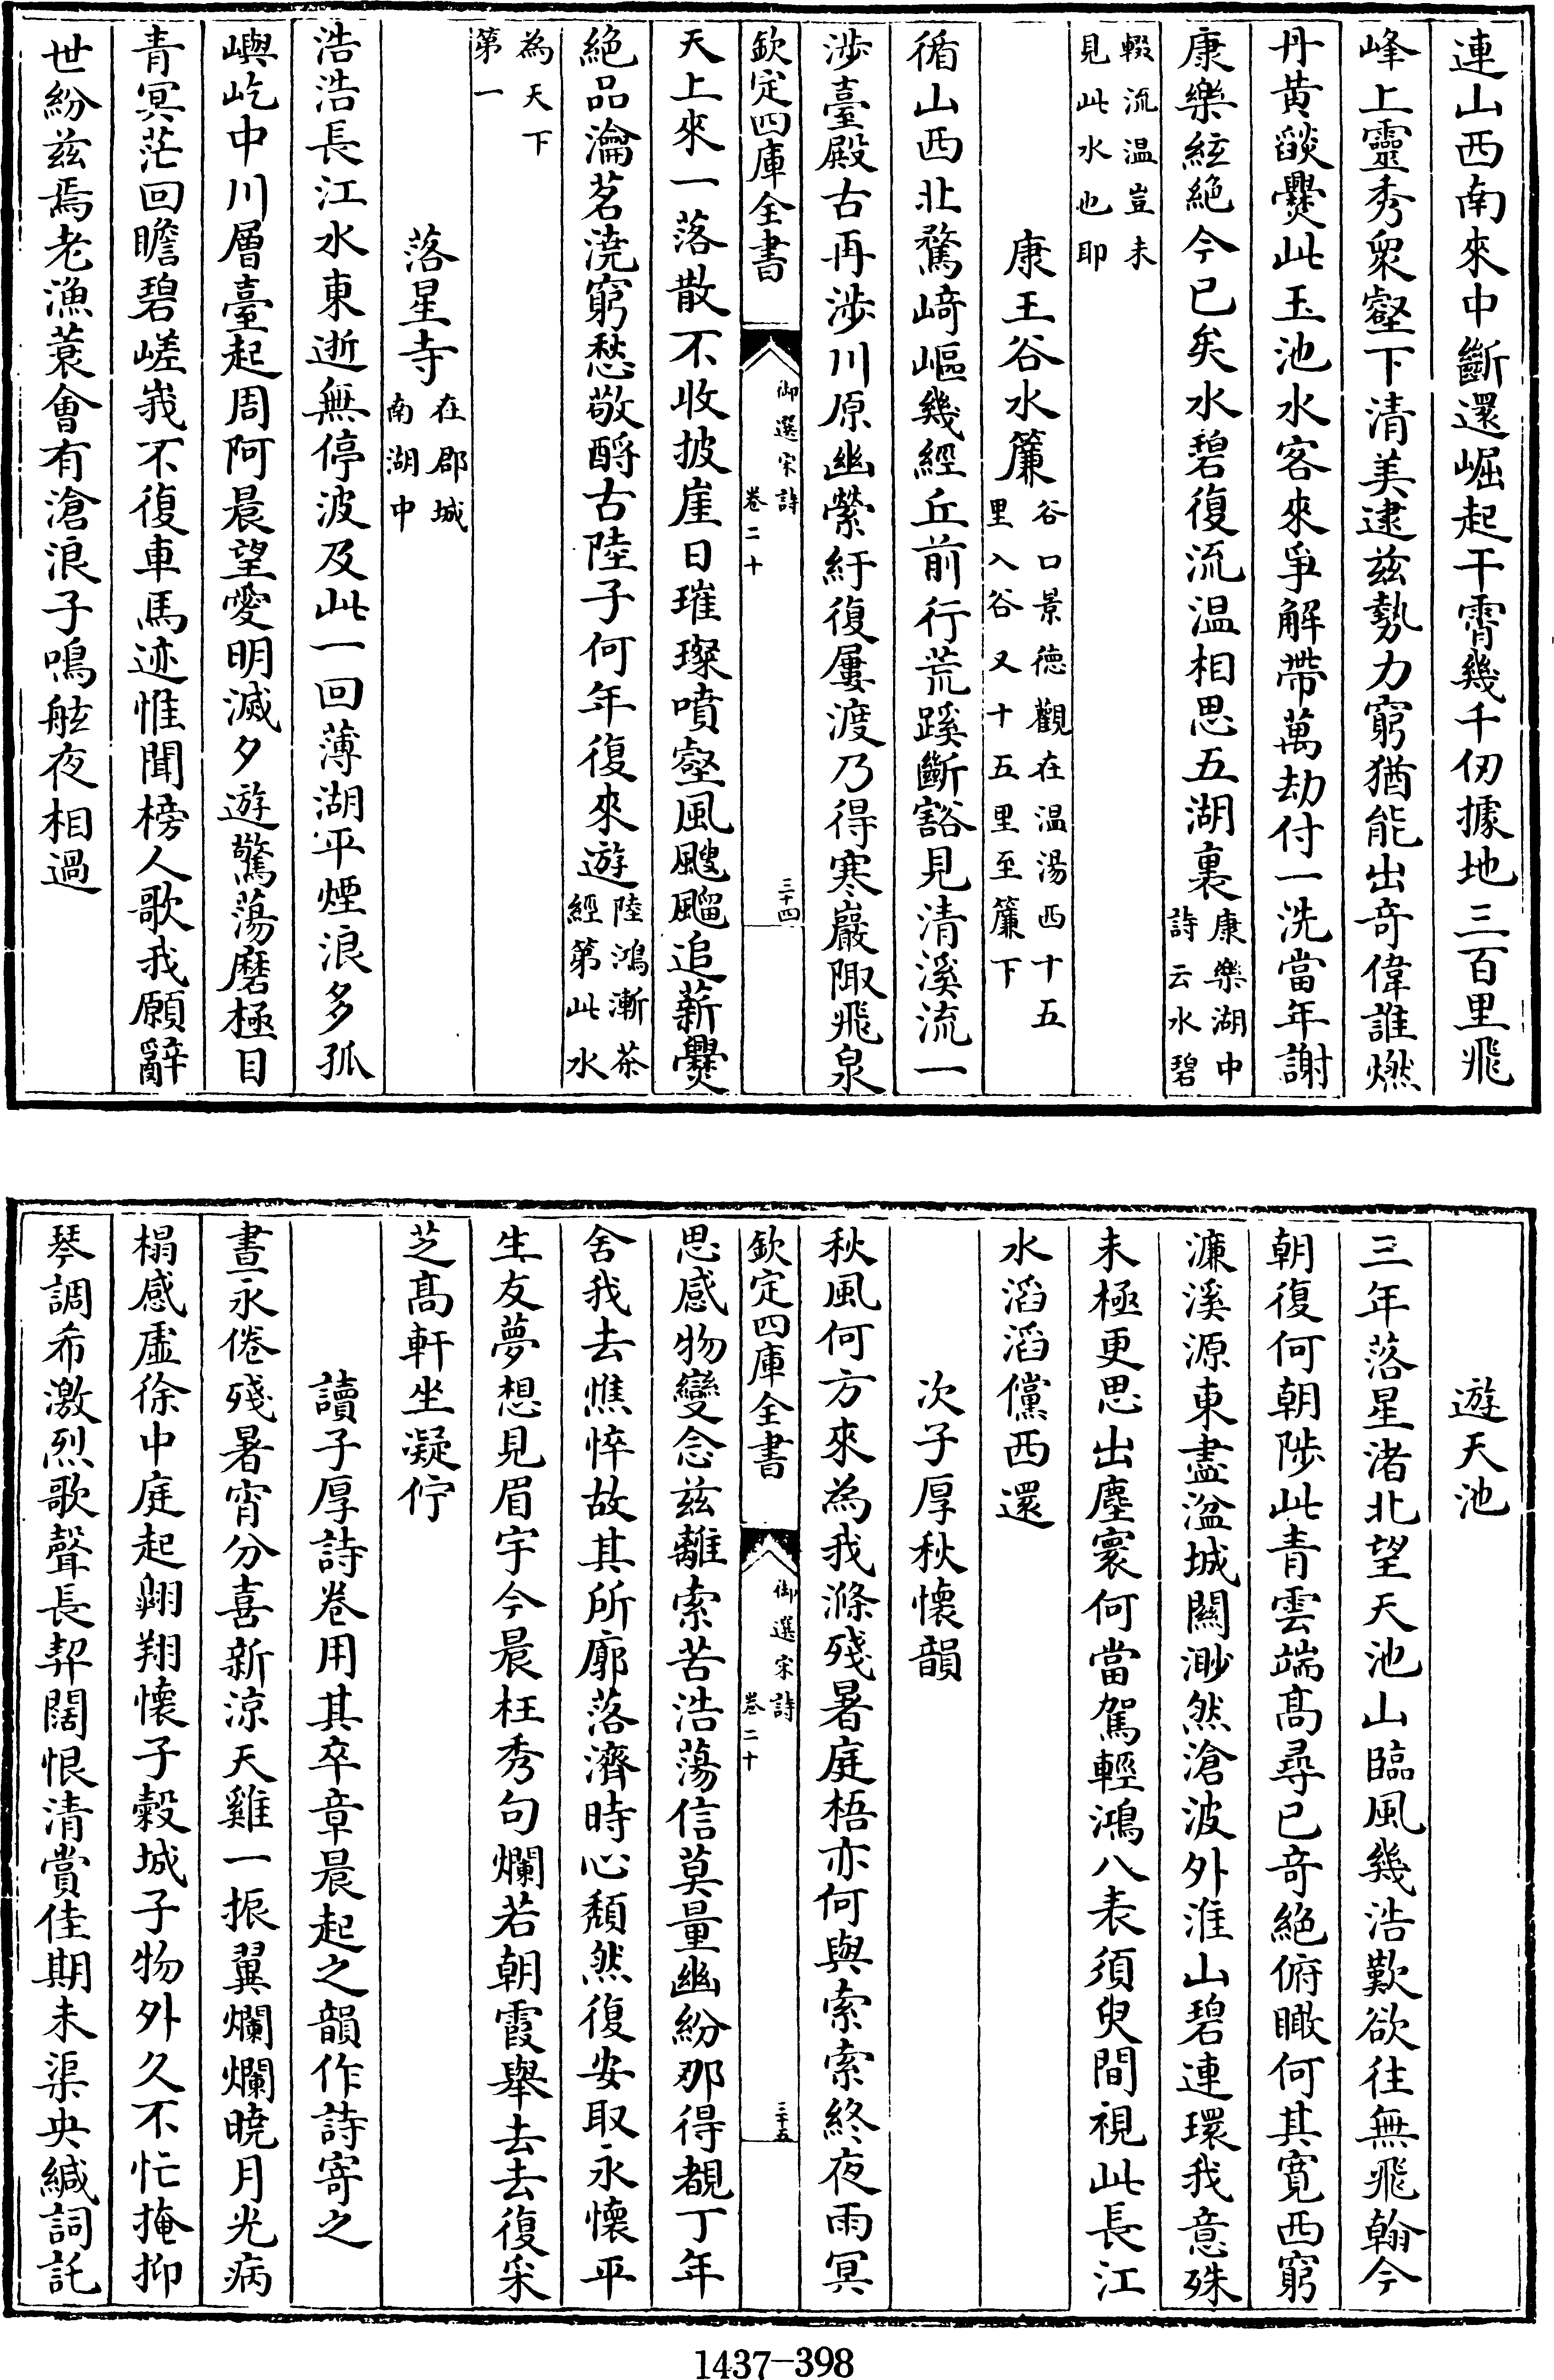 連山西南來中斷還崛起干霄幾千仞據地三百里飛
峰上靈秀衆壑下清美逮兹勢力窮猶能出奇偉誰燃
丹黄燄爨此玉池水客來爭解帶萬劫付一洗當年謝
康樂絃絶今已矣水碧復流温相思五湖裏康樂湖中
詩云水碧
輟流温豈未
見此水也耶
康王谷水簾谷口景德觀在温湯西十五
里入谷又十五里至簾下
循山西北騖崎嶇幾經丘前行荒蹊斷豁見清溪流一
涉臺殿古再涉川原幽縈紆復屢渡乃得寒巖陬飛泉
欽定四庫全書
御選宋詩
卷二十
三十四
天上來一落散不收披崖日璀璨噴壑風颼飀追薪爨
絶品瀹茗澆窮愁敬酹古陸子何年復來遊陸鴻漸茶
經第此水
為天下
第一
落星寺在郡城
南湖中
浩浩長江水東逝無停波及此一回薄湖平煙浪多孤
嶼屹中川層臺起周阿晨望愛明滅夕遊驚蕩磨極目
青冥茫回瞻碧嵯峩不復車馬迹惟聞榜人歌我願辭
世紛兹焉老漁蓑會有滄浪子鳴舷夜相過
遊天池
三年落星渚北望天池山臨風幾浩歎欲往無飛翰今
朝復何朝陟此青雲端髙尋已奇絶俯瞰何其寛西窮
濂溪源東盡湓城闗渺然滄波外淮山碧連環我意殊
未極更思出塵寰何當駕輕鴻八表須臾間視此長江
水滔滔儻西還
次子厚秋懷韻
秋風何方來為我滌殘暑庭梧亦何與索索終夜雨冥
欽定四庫全書
御選宋詩
卷二十
三十五
思感物變念兹離索苦浩蕩信莫量幽紛那得覩丁年
舍我去憔悴故其所廓落濟時心頽然復安取永懷平
生友夢想見眉宇今晨枉秀句爛若朝霞舉去去復采
芝髙軒坐凝佇
讀子厚詩卷用其卒章晨起之韻作詩寄之
晝永倦殘暑宵分喜新涼天雞一振翼爛爛曉月光病
榻感虛徐中庭起翺翔懷子榖城子物外久不忙掩抑
琴調希激烈歌聲長契闊恨清賞佳期未渠央緘詞託
1437-398